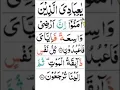 يٰعِبَادِيَ الَّذِيْنَ
اٰمَنُوْٓا اِنَّ اَرْضِيْ
وَاسِعَةٌ فَاِيَّايَ
فَاعْبُدُوْنِ كُلُّ نَفْسٍ
ذَآئِقَةُ الْمَوْتِ ثُمَّ
اِلَيْنَا تُرْجَعُوْنَ